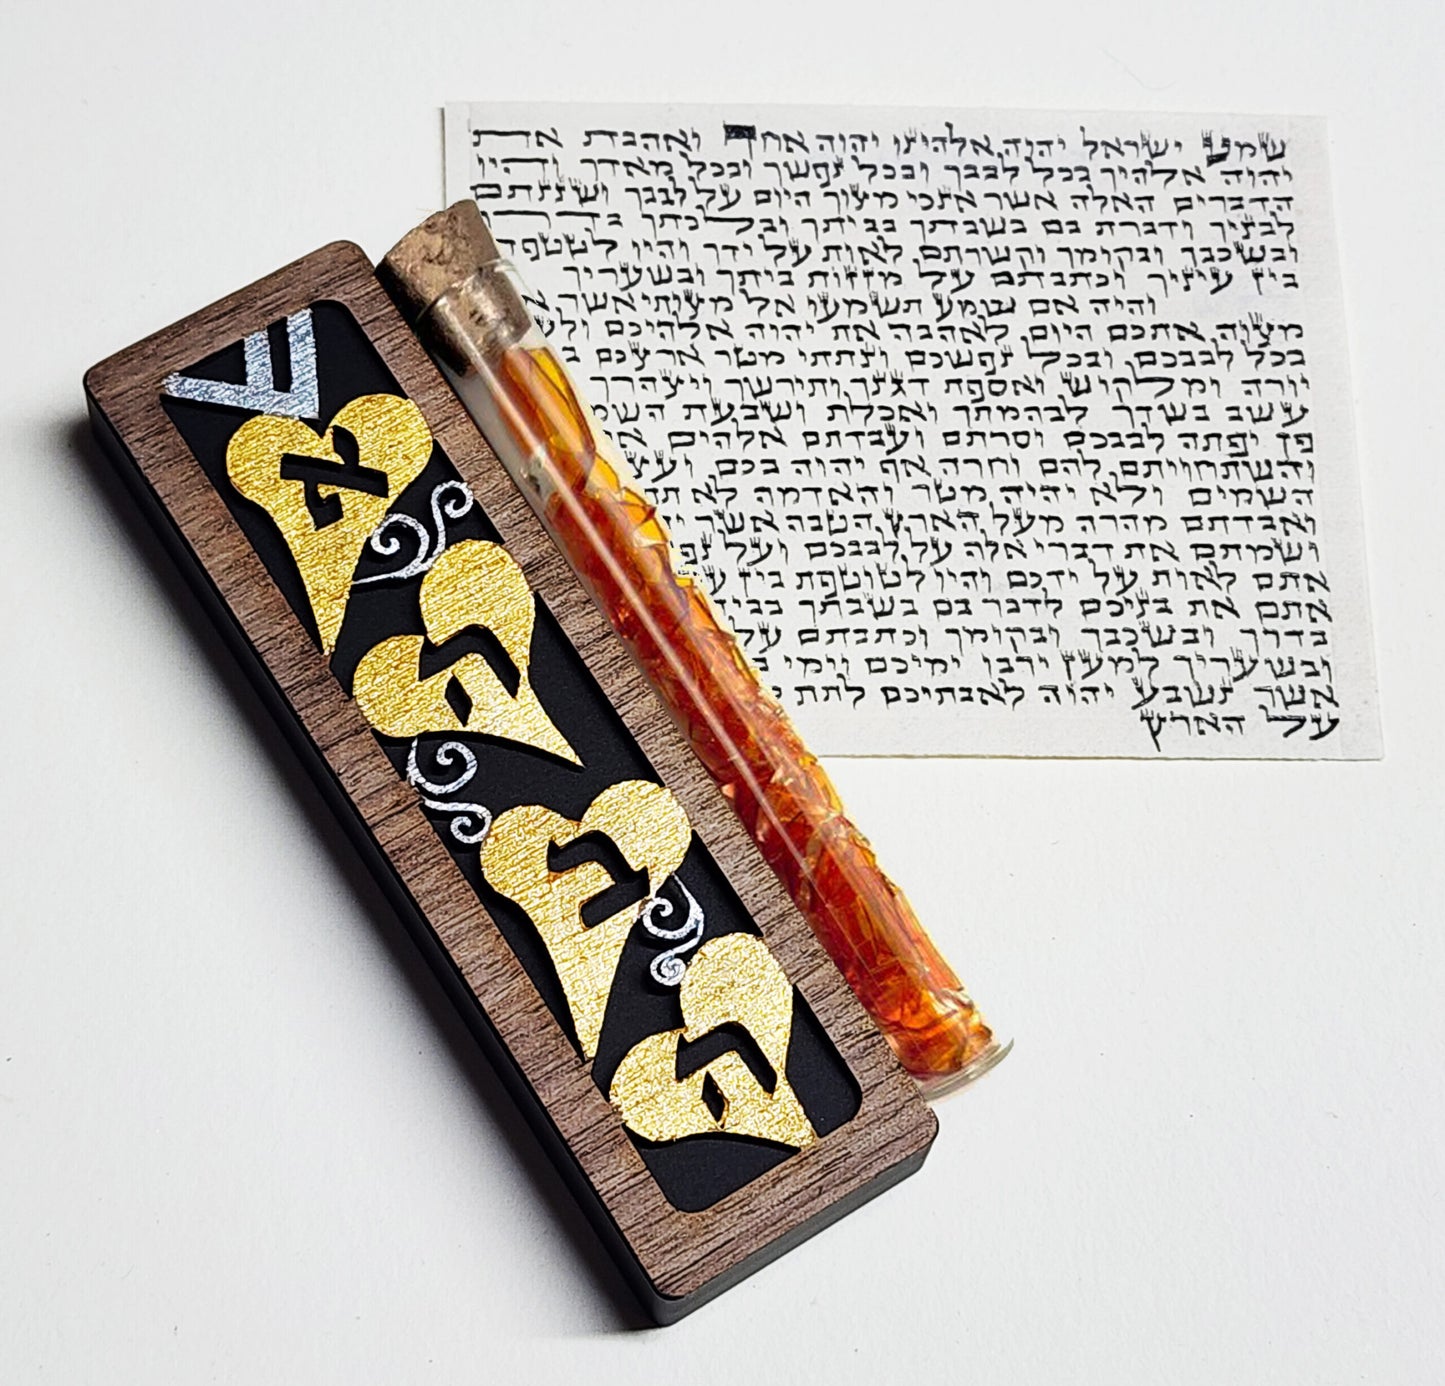 ש
א
ה
ב
ה
שמע ישראל יהוה אלהינו יהוה אחד ואהבת את
יהוה אלהיך בכל לבבך ובכל נפשך ובכל מאדך והיו
הדברים האלה אשר אנכי מצוך היום על לבבך ושננתם
לבניך ודברת בם בשבתך בביתך ובלכתך בדרך
ובשכבך ובקומך וקשרתם לאות על ידך והיו לטטפת
בין עיניך וכתבתם על מזזות ביתך ובשעריך
והיה אם שמע תשמעו אל מצותי אשר
מצוה אתכם היום לאהבה את יהוה אלהיכם
בכל לבבכם ובכל נפשכם ונתתי מטר ארצכם
יורה ומלקוש ואספת דגנך ותירשך ויצהרך
עשב בשדך לבהמתך ואכלת ושבעת
פן יפתה לבבכם וסרתם ועבדתם אלהים
והשתחויתם להם וחרה אף יהוה בכם
השמים ולא יהיה מטר והאדמה לא
ואבדתם מהרה מעל הארץ הטבה אשר
ושמתם את דברי אלה על לבבכם ועל
אתם לאות על ידכם והיו לטוטפת בין
אתם את בניכם לדבר בם בשבתך
בדרך ובשכבך ובקומך וכתבתם על
ובשעריך למען ירבו ימיכם וימי
אשר נשבע יהוה לאבתיכם לתת
על הארץ